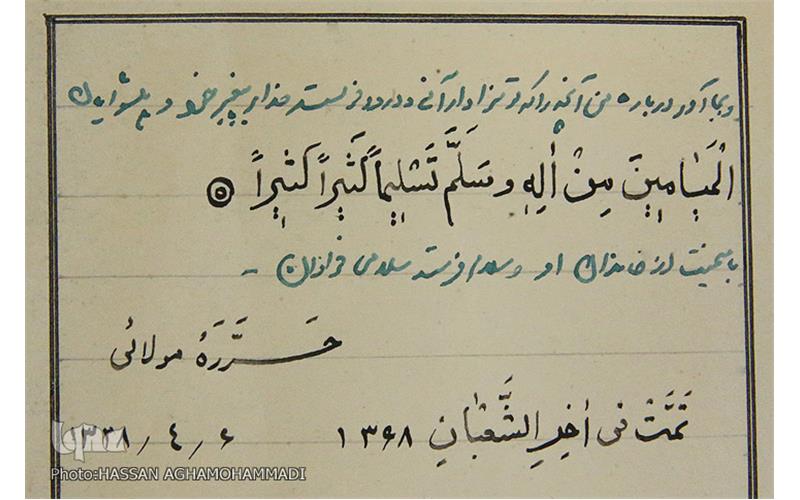 و بجا آور درباره من آنچه را که تو سزاوار آنی و درود فرستد خدا بر پیغمبر خود و پیشوایان
الْمَيٰامينَ مِنْ اٰلِهِ وسَلَّمَ تَسْليماً كَثيراً كَثيراً
با میمنت از خاندان او وسلام فرستد سلامی فراوان -
حَرَّرَهُ مولائی
تَمَّتْ فی اٰخِرِ الشَّعْبٰانِ ۱۳۶۸ ۱۳۲۸/۴/۶
Photo:HASSAN AGHAMOHAMMADI